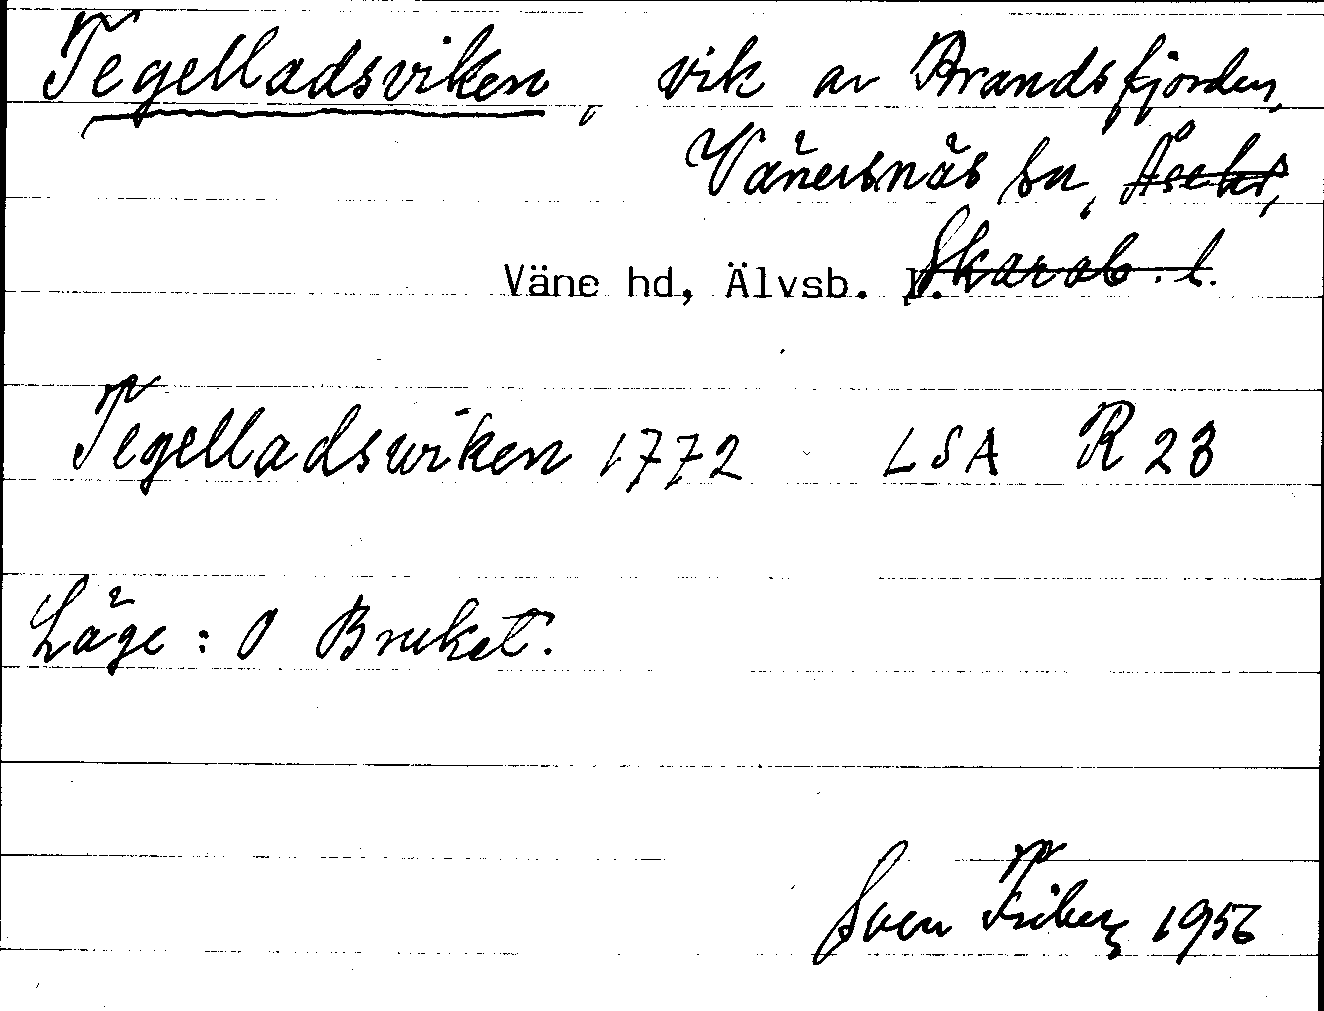 Tegelladsviken, vik av Brandsfjorden,
Vänersnäs sn, Åsehd,
Väne hd, Älvsb. l. Skarab. l.
Tegelladswiken 1772 LSA R 23
Läge: O Bruket.
Sven Friberg 1956